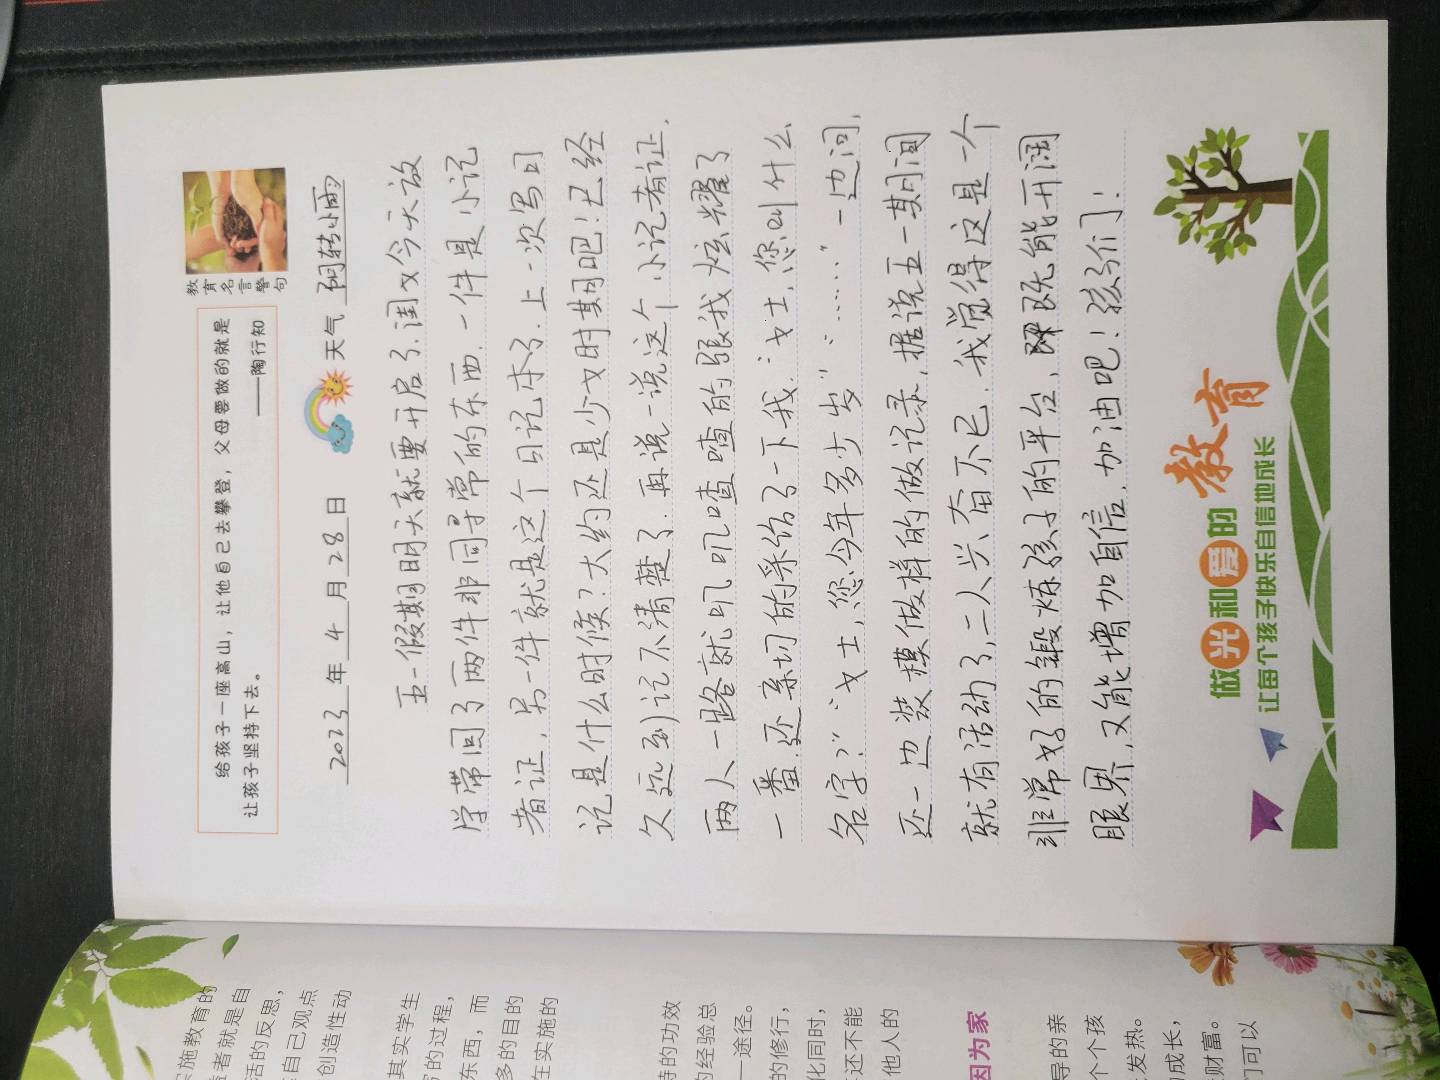 给孩子一座高山，让他自己去攀登，父母要做的就是
让孩子坚持下去。
——陶行知
教育名言警句
2023年4月28日 天气 阴转小雨
五一假期明天就要开启了,闺女今天放
学带回了两件非同寻常的东西.一件是小记
者证,另一件就是这个日记本了.上一次写日
记是什么时候?大约还是少女时期吧!已经
久远到记不清楚了.再说一说这个小记者证.
两人一路就叽叽喳喳的跟我炫耀了
一番,还亲切的采访了一下我.“女士,您叫什么
名字?”“女士,您今年多少岁”“……”一边问,
还一边装模做样的做记录,据说五一期间
就有活动了,二人兴奋不已.我觉得这是一个
非常好的锻炼孩子的平台,既能开阔
眼界,又能增加自信.加油吧!孩子们!
做光和爱的教育
让每个孩子快乐自信地成长
实施教育的
者就是自
活的反思，
自己观点
创造性动
其实学生
的过程，
东西，而
多的目的
在实施的
的功效
经验总
一途径。
的修行，
化同时，
还不能
他人的
因为家
导的亲
个个孩
发热。
成长，
财富。
门可以